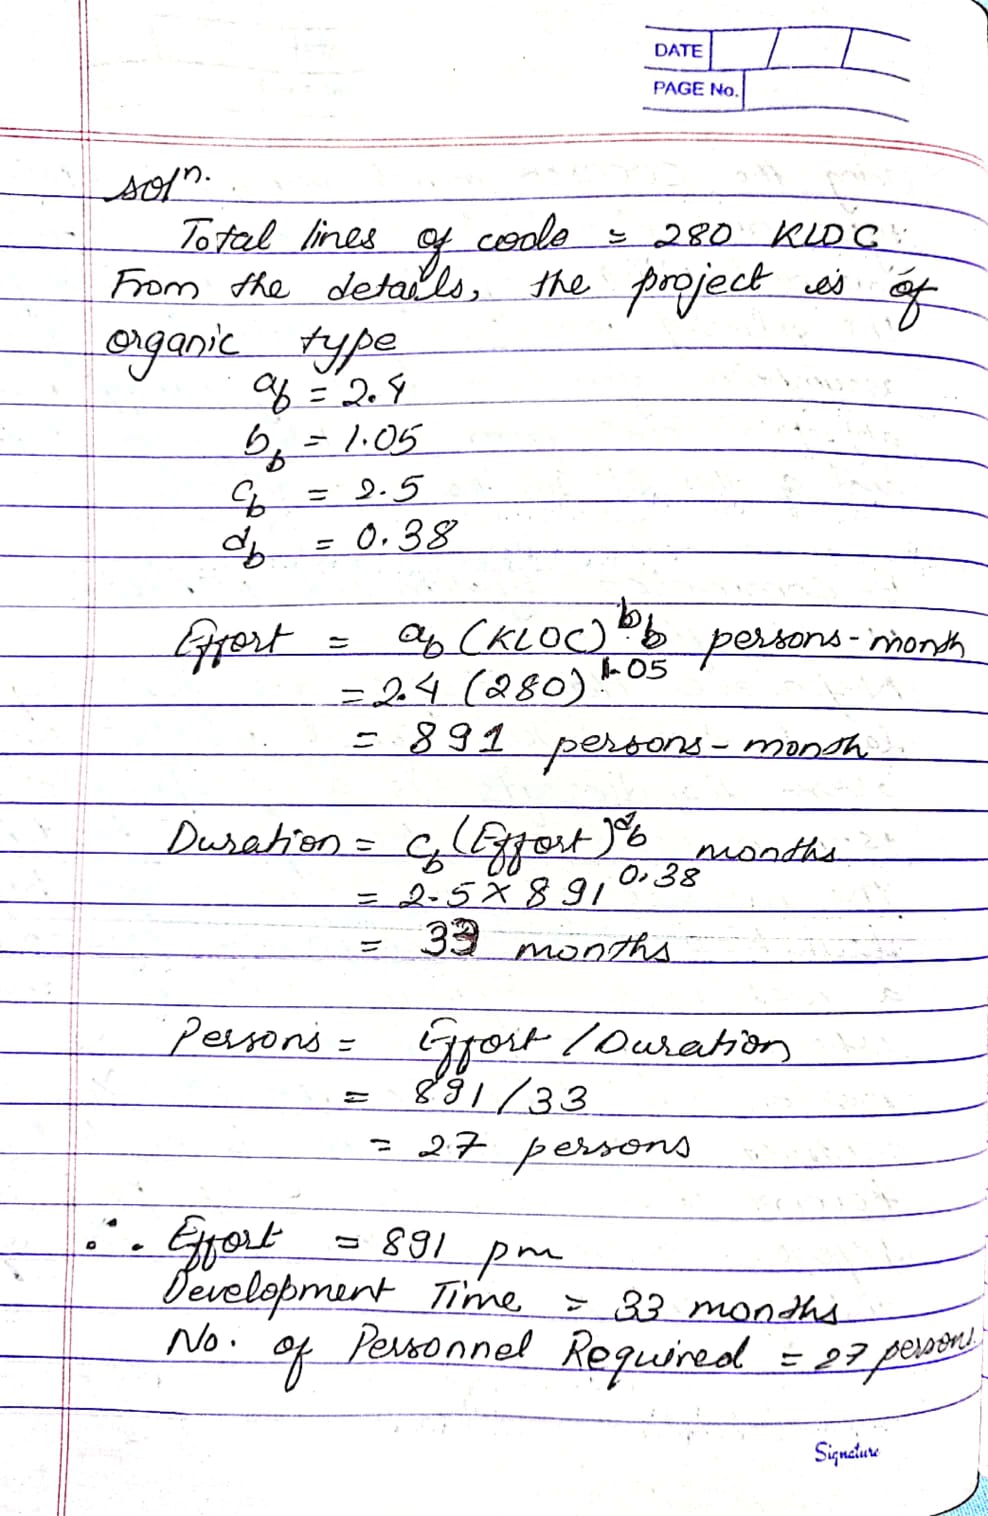 DATE
PAGE No.
soln.
Total lines of code = 280 KLOC
From the details, the project is of
organic type
ab = 2.4
bb = 1.05
cb = 2.5
db = 0.38
Effort = ab (KLOC)^bb persons-month
= 2.4 (280)^1.05
= 891 persons-month
Duration = cb (Effort)^db months
= 2.5 × 891^0.38
= 33 months
Persons = Effort / Duration
= 891/33
= 27 persons
∴ Effort = 891 pm
Development Time = 33 months
No. of Personnel Required = 27 persons.
Signature